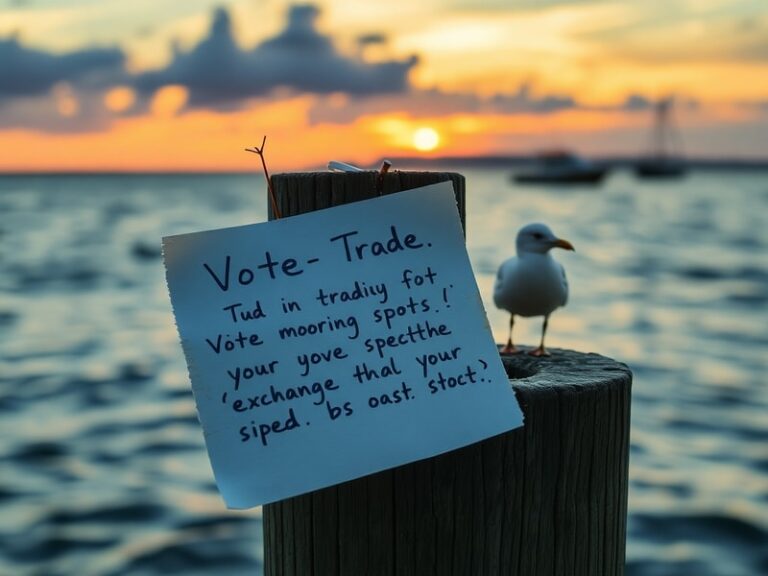 Vote-Trade.
Tud in tradiły fot
Vote mooring spots.!
your yove specthe
'exchange thal your
siped. bs oast. stoct.